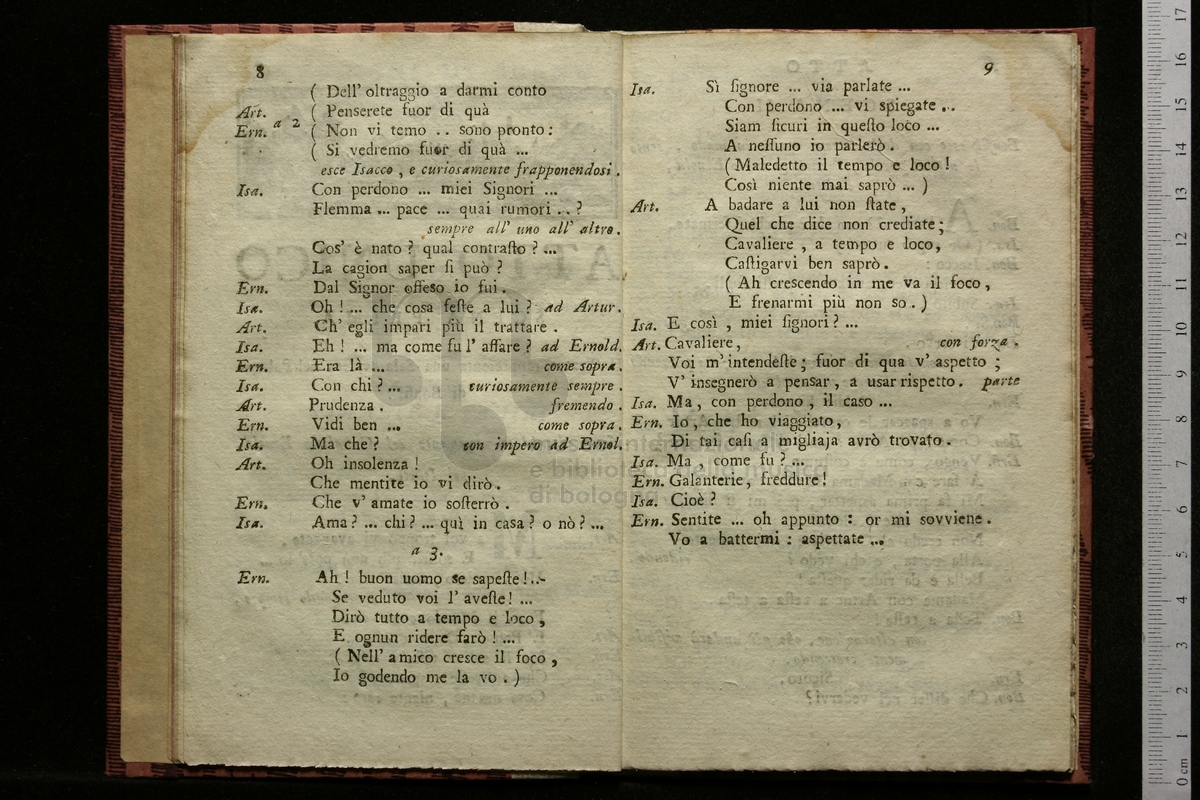 8
( Dell' oltraggio a darmi conto
Art. ( Penserete fuor di quà
Ern. a 2 ( Non vi temo .. sono pronto:
( Si vedremo fuor di quà ...
esce Isacco, e curiosamente frapponendosi.
Isa. Con perdono ... miei Signori ...
Flemma ... pace ... quai rumori .. ?
sempre all' uno all' altro.
Cos' è nato ? qual contraſto ? ...
La cagion saper ſi può ?
Ern. Dal Signor offeso io fui.
Isa. Oh ! ... che cosa feſte a lui ? ad Artur.
Art. Ch' egli impari più il trattare .
Isa. Eh ! ... ma come fu l' affare ? ad Ernold.
Ern. Era là ... come sopra.
Isa. Con chi ? ... curiosamente sempre .
Art. Prudenza . fremendo .
Ern. Vidi ben ... come sopra.
Isa. Ma che ? con impero ad Ernol.
Art. Oh insolenza !
Che mentite io vi dirò .
Ern. Che v' amate io soſterrò .
Isa. Ama ? ... chi ? ... quì in casa ? o nò ? ...
a 3.
Ern. Ah ! buon uomo se sapeſte !...
Se veduto voi l' aveſte ! ...
Dirò tutto a tempo e loco ,
E ognun ridere farò ! ...
( Nell' amico cresce il foco ,
Io godendo me la vo . )
9
Isa. Sì ſignore ... via parlate ...
Con perdono ... vi spiegate ...
Siam ſicuri in queſto loco ...
A neſſuno io parlerò .
( Maledetto il tempo e loco !
Così niente mai saprò ... )
Art. A badare a lui non ſtate ,
Quel che dice non crediate ;
Cavaliere , a tempo e loco,
Caſtigarvi ben saprò .
( Ah crescendo in me va il foco ,
E frenarmi più non so . )
Isa. E così , miei ſignori ? ...
Art. Cavaliere, con forza .
Voi m' intendeſte ; fuor di qua v' aspetto ;
V' insegnerò a pensar , a usar rispetto . parte
Isa. Ma , con perdono , il caso ...
Ern. Io , che ho viaggiato ,
Di tai caſi a migliaja avrò trovato .
Isa. Ma , come fu ? ...
Ern. Galanterie , freddure !
Isa. Cioè ?
Ern. Sentite ... oh appunto : or mi sovviene .
Vo a battermi : aspettate ...
e biblioteca della musica
di bologna
17
16
15
14
13
12
11
10
9
8
7
6
5
4
3
2
1
0 cm